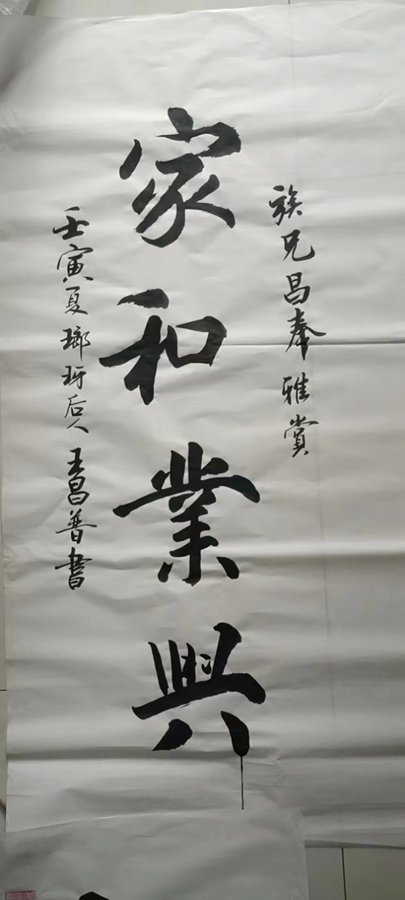 族兄昌奉雅賞
家和業興
壬寅夏瑯玡后人王昌普書